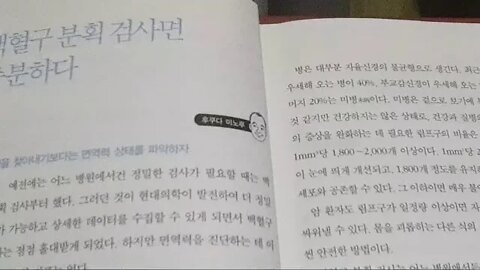 백혈구 분획 검사면
충분하다
후쿠다 미노루
찾아내기보다는 면역력 상태를 파악하자
예전에는 어느 병원에서건 정밀한 검사가 필요할 때는 백
검사부터 했다. 그러던 것이 현대의학이 발전하여 더 정밀
가능하고 상세한 데이터를 수집할 수 있게 되면서 백혈구
는 점점 홀대받게 되었다. 하지만 면역력을 진단하는 데 이
은 없다.
병은 대부분 자율신경의 불균형으로 생긴다. 최근
우세해 오는 병이 40%, 부교감신경이 우세해 오는
머지 20%는 미병이다. 미병은 겉으로 보기에
것 같지만 건강하지는 않은 상태로, 건강과 질병
의 증상을 완화하는 데 필요한 림프구의 비율은
1mm³당 1,800~2,000개 이상이다. 1mm³당
이 눈에 띄게 개선되고, 1,800개 정도를 유지
세포와 공존할 수 있다. 그 이하이면 매우
암 환자도 림프구가 일정량 이상이면 자
싸워낼 수 있다. 몸을 괴롭히는 다른 식의
씬 안전한 방법이다.
검사는 어느 병원에서든